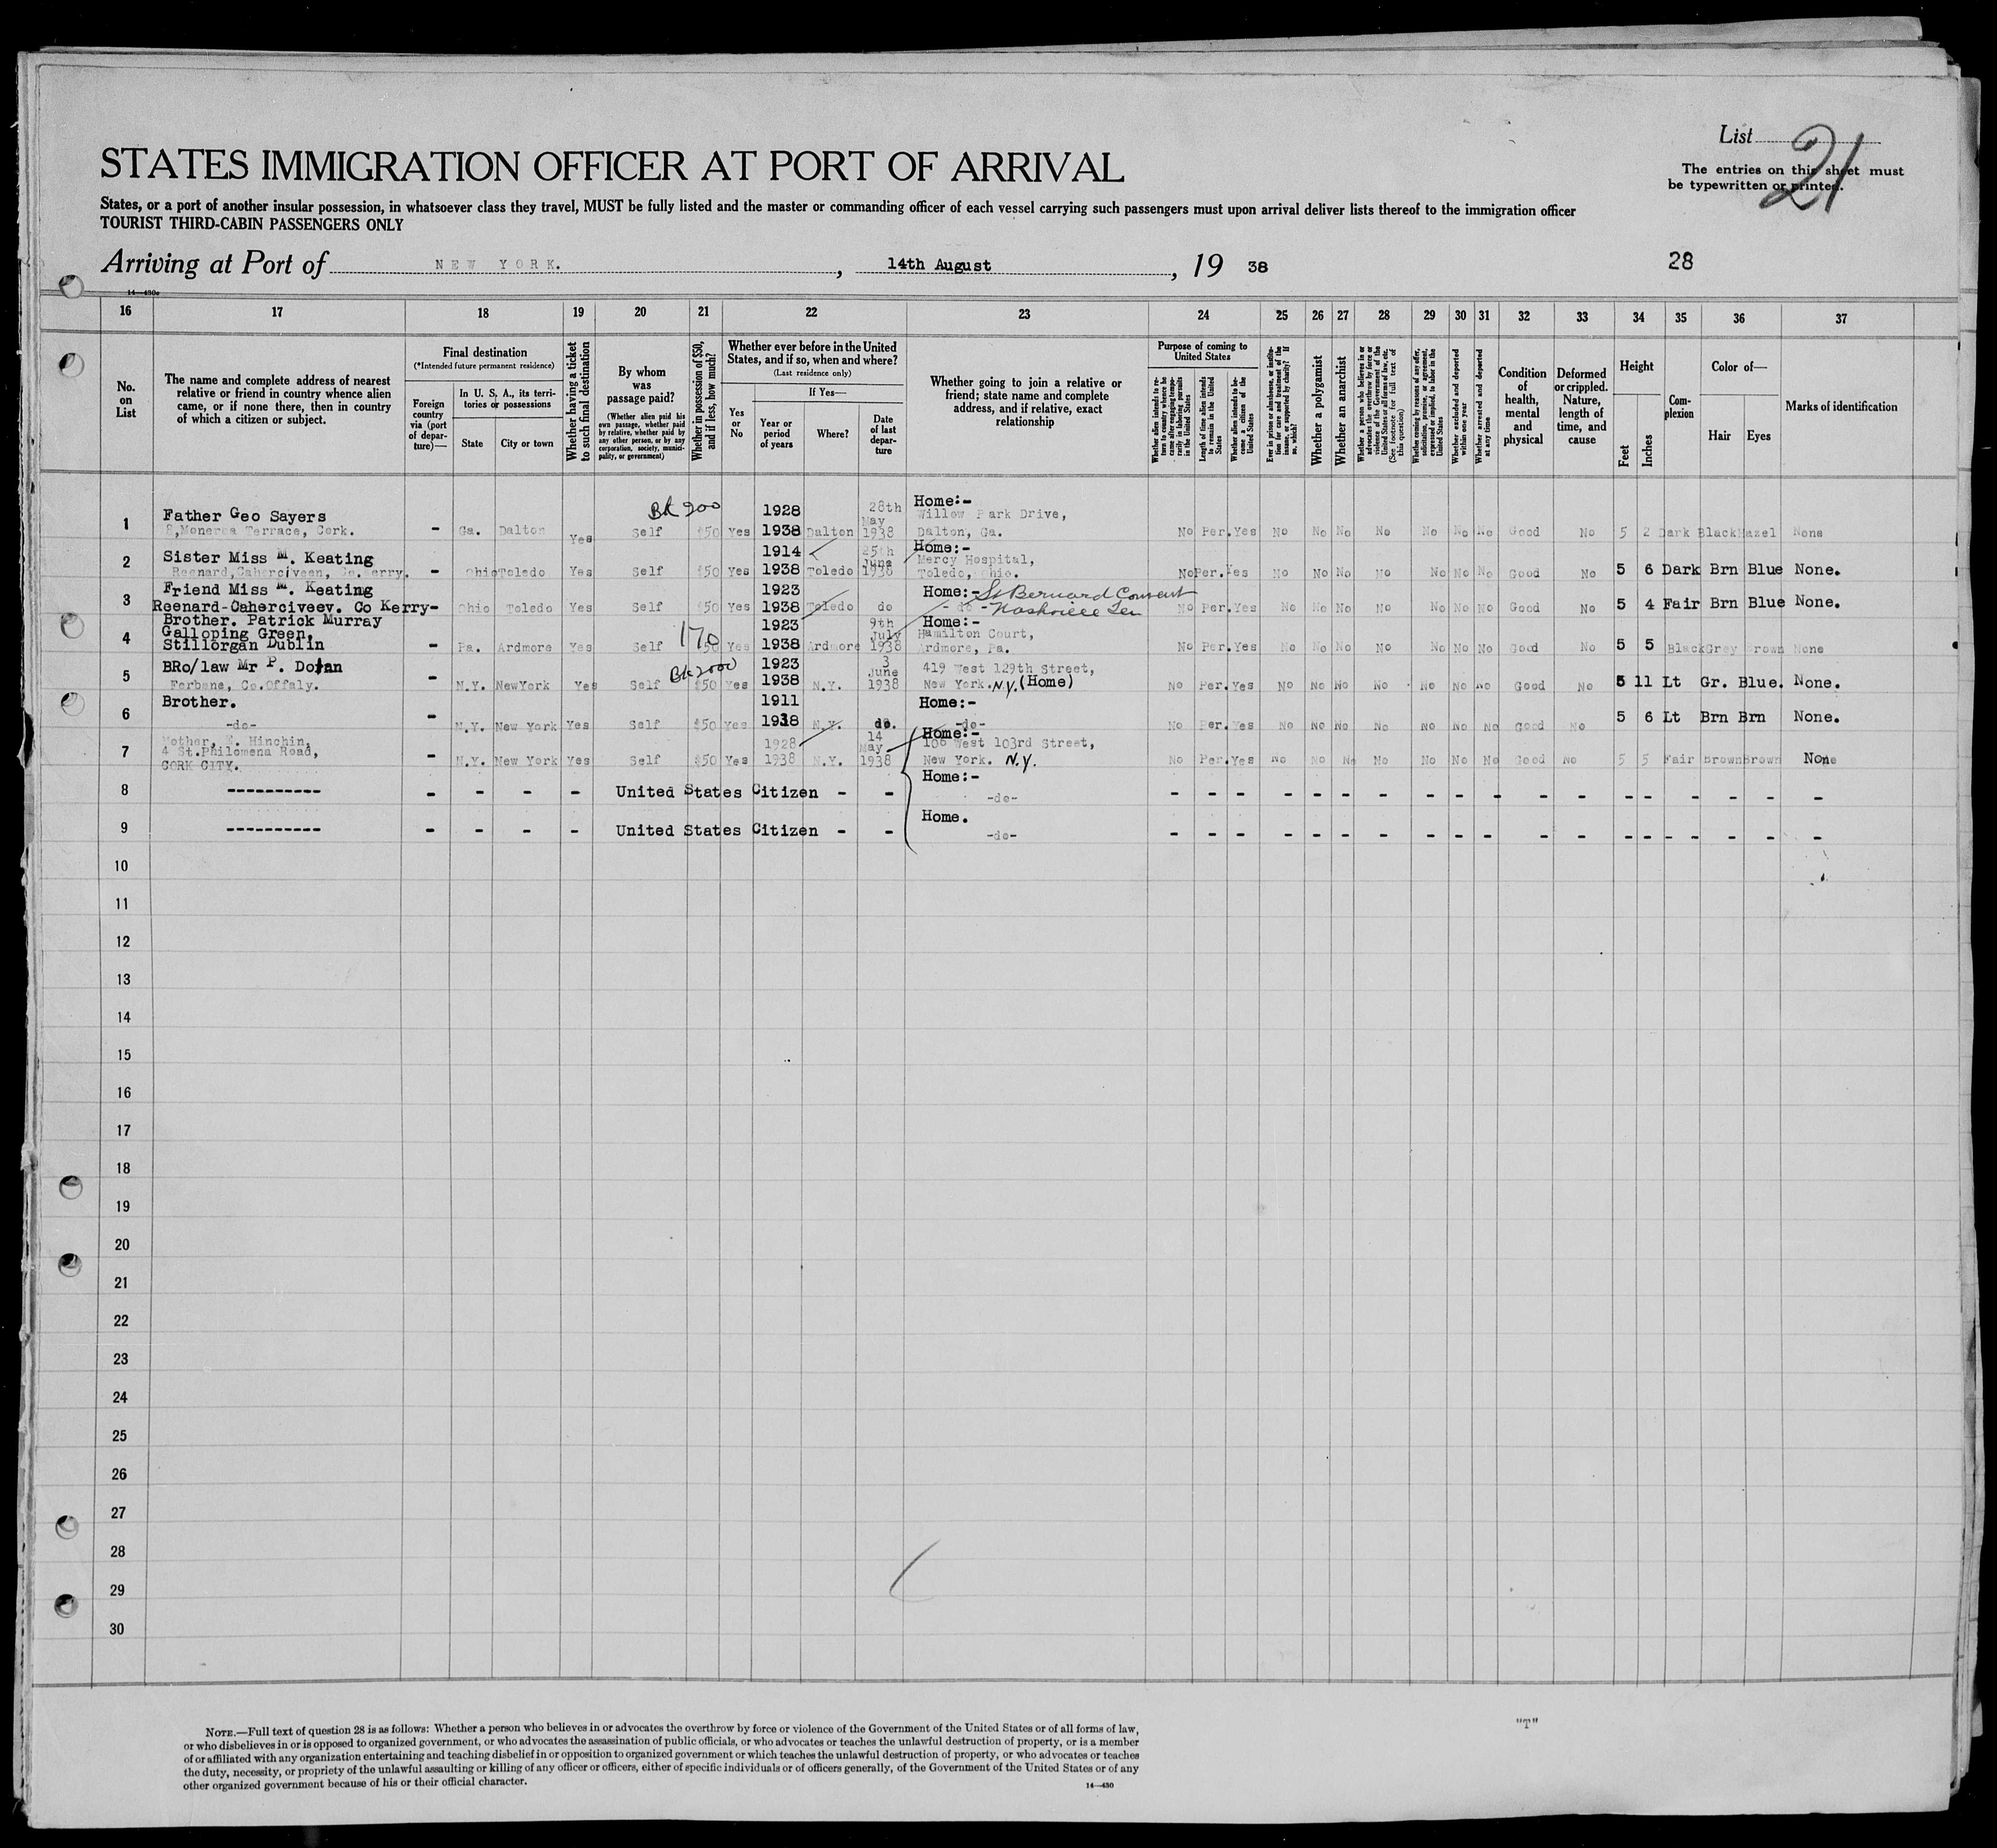 List 21
The entries on this sheet must
be typewritten or printed.
STATES IMMIGRATION OFFICER AT PORT OF ARRIVAL
States, or a port of another insular possession, in whatsoever class they travel, MUST be fully listed and the master or commanding officer of each vessel carrying such passengers must upon arrival deliver lists thereof to the immigration officer
TOURIST THIRD-CABIN PASSENGERS ONLY
Arriving at Port of NEW YORK. , 14th August , 19 38
28
16 17 18 19 20 21 22 23 24 25 26 27 28 29 30 31 32 33 34 35 36 37
No. on List
The name and complete address of nearest
relative or friend in country whence alien
came, or if none there, then in country
of which a citizen or subject.
Final destination
(*Intended future permanent residence)
Foreign country via (port of departure)—
In U. S. A., its territories or possessions
State
City or town
Whether having a ticket to such final destination
By whom was passage paid?
(Whether alien paid his own passage, whether paid by relative, whether paid by any other person, or by any corporation, society, municipality, or government)
Whether in possession of $50, and if less, how much?
Whether ever before in the United
States, and if so, when and where?
(Last residence only)
Yes or No
If Yes—
Year or period of years
Where?
Date of last departure
Whether going to join a relative or
friend; state name and complete
address, and if relative, exact
relationship
Purpose of coming to United States
Whether alien intends to return to country whence he came after engaging temporarily in laboring pursuits in the United States
Length of time alien intends to remain in the United States
Whether alien intends to become a citizen of the United States
Ever in prison or almshouse, or institution for care and treatment of the insane, or supported by charity? If so, which?
Whether a polygamist
Whether an anarchist
Whether a person who believes in or advocates the overthrow by force or violence of the Government of the United States or all forms of law, etc. (See footnote for full text of this question)
Whether coming by reasons of any offer, solicitation, promise, or agreement, expressed or implied, to labor in the United States
Whether excluded and deported within one year
Whether arrested and deported at any time
Condition of health, mental and physical
Deformed or crippled. Nature, length of time, and cause
Height
Feet
Inches
Complexion
Color of—
Hair
Eyes
Marks of identification
1 Father Geo Sayers Bk 200 1928 28th May Home:- Willow Park Drive,
Terrace, Cork. - Ga. Dalton Yes Self $50 Yes 1938 Dalton 1938 Dalton, Ga. No Per. Yes No No No No No No No Good No 5 2 Dark Black Hazel None
2 Sister Miss M. Keating 1914 25th June Home:- Mercy Hospital,
Reenard, Caherciveen, Co. Kerry. - Ohio Toledo Yes Self $50 Yes 1938 Toledo 1938 Toledo, Ohio. No Per. Yes No No No No No No No Good No 5 6 Dark Brn Blue None.
3 Friend Miss M. Keating 1923 Home:- St Bernard Convent
Reenard-Caherciveev. Co Kerry- Ohio Toledo Yes Self $50 Yes 1938 Toledo do - do - Nashville Ten No Per. Yes No No No No No No No Good No 5 4 Fair Brn Blue None.
4 Brother. Patrick Murray 1923 9th July Home:-
Galloping Green, 170 Hamilton Court,
Stillorgan Dublin - Pa. Ardmore Yes Self $50 Yes 1938 Ardmore 1938 Ardmore, Pa. No Per. Yes No No No No No No No Good No 5 5 Black Grey Brown None
5 BRo/law Mr P. Dolan Bk 2000 1923 3 June 419 West 129th Street,
Ferbane, Co.Offaly. - N.Y. NewYork Yes Self $50 Yes 1938 N.Y. 1938 New York. N.Y. (Home) No Per. Yes No No No No No No No Good No 5 11 Lt Gr. Blue. None.
6 Brother. 1911 Home:-
-do- - N.Y. New York Yes Self $50 Yes 1938 N.Y. do. -do- No Per. Yes No No No No No No No Good No 5 6 Lt Brn Brn None.
7 Mother, Hinchin, 1928 14 May Home:-
4 St.Philomena Road, 106 West 103rd Street,
CORK CITY. - N.Y. New York Yes Self $50 Yes 1938 N.Y. 1938 New York. N.Y. No Per. Yes No No No No No No No Good No 5 5 Fair Brown Brown None
8 ---------- - - - - United States Citizen - - Home:-
-do- - - - - - - - - - - - - - - - - - -
9 ---------- - - - - United States Citizen - - Home.
-do- - - - - - - - - - - - - - - - - - -
10
11
12
13
14
15
16
17
18
19
20
21
22
23
24
25
26
27
28
29
30
NOTE.—Full text of question 28 is as follows: Whether a person who believes in or advocates the overthrow by force or violence of the Government of the United States or of all forms of law,
or who disbelieves in or is opposed to organized government, or who advocates the assassination of public officials, or who advocates or teaches the unlawful destruction of property, or is a member
of or affiliated with any organization entertaining and teaching disbelief in or opposition to organized government or which teaches the unlawful destruction of property, or who advocates or teaches
the duty, necessity, or propriety of the unlawful assaulting or killing of any officer or officers, either of specific individuals or of officers generally, of the Government of the United States or of any
other organized government because of his or their official character.
14—430
"T"